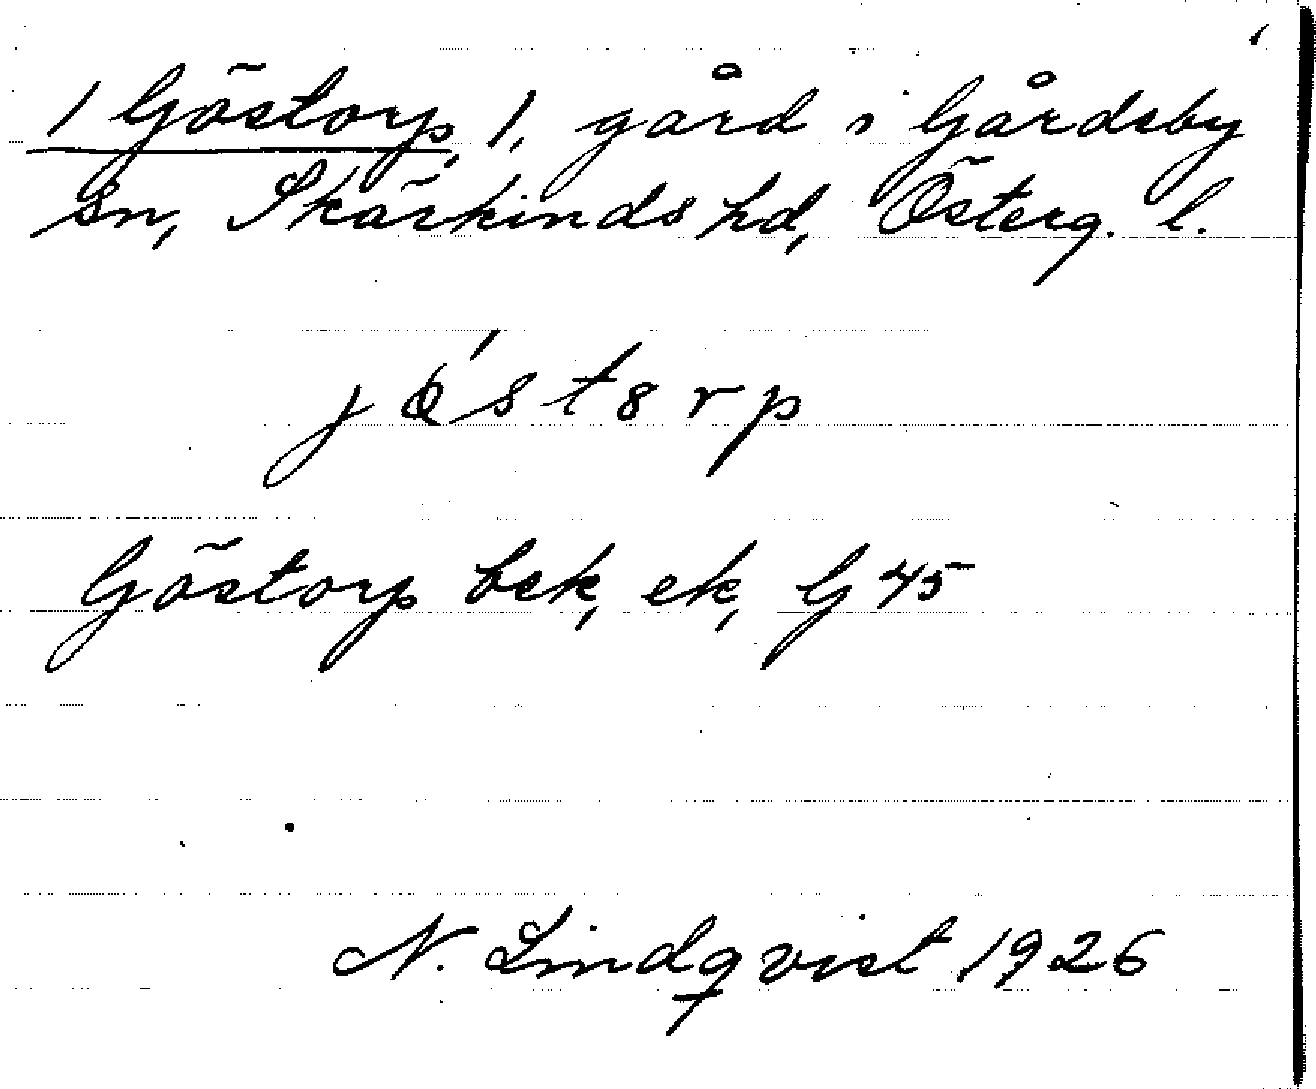 / Göstorp, /, gård i Gårdeby
sn, Skärkinds hd, Österg. l.
jǿstɵrp
Göstorp bek, ek, G 45
N. Lindqvist 1926